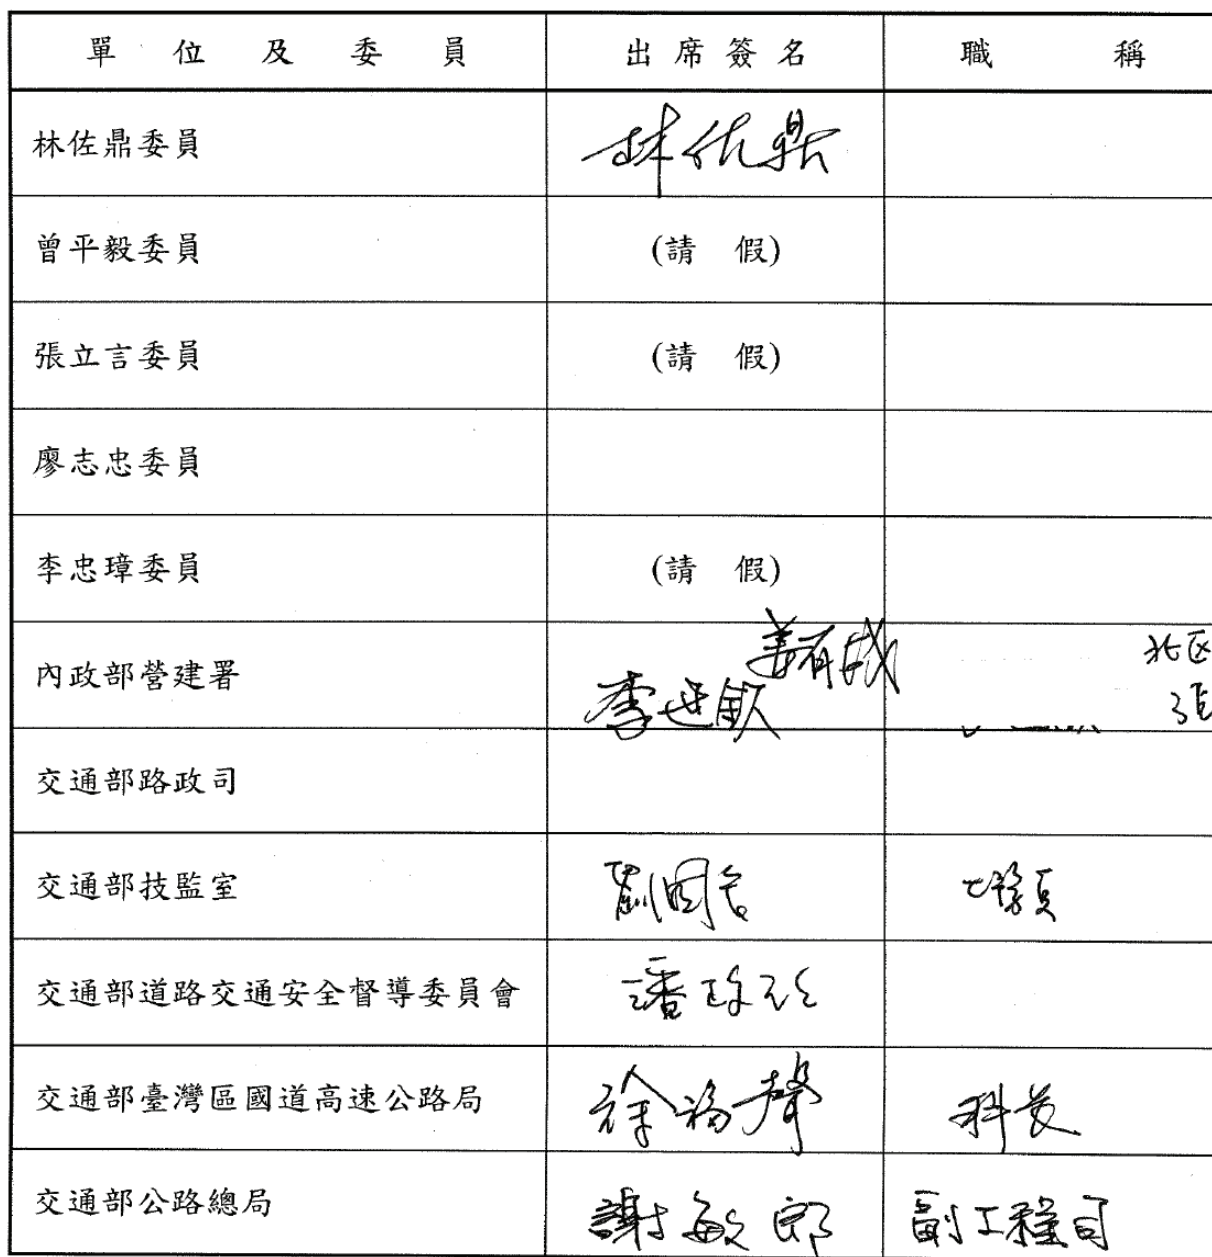 單位及委員 出席簽名 職稱
林佐鼎委員 林佐鼎
曾平毅委員 (請 假)
張立言委員 (請 假)
廖志忠委員
李忠璋委員 (請 假)
姜有成 北区
內政部營建署 李世欽
交通部路政司
交通部技監室
交通部道路交通安全督導委員會 潘
交通部臺灣區國道高速公路局 徐福聲 科長
交通部公路總局 謝敏郎 副工程司